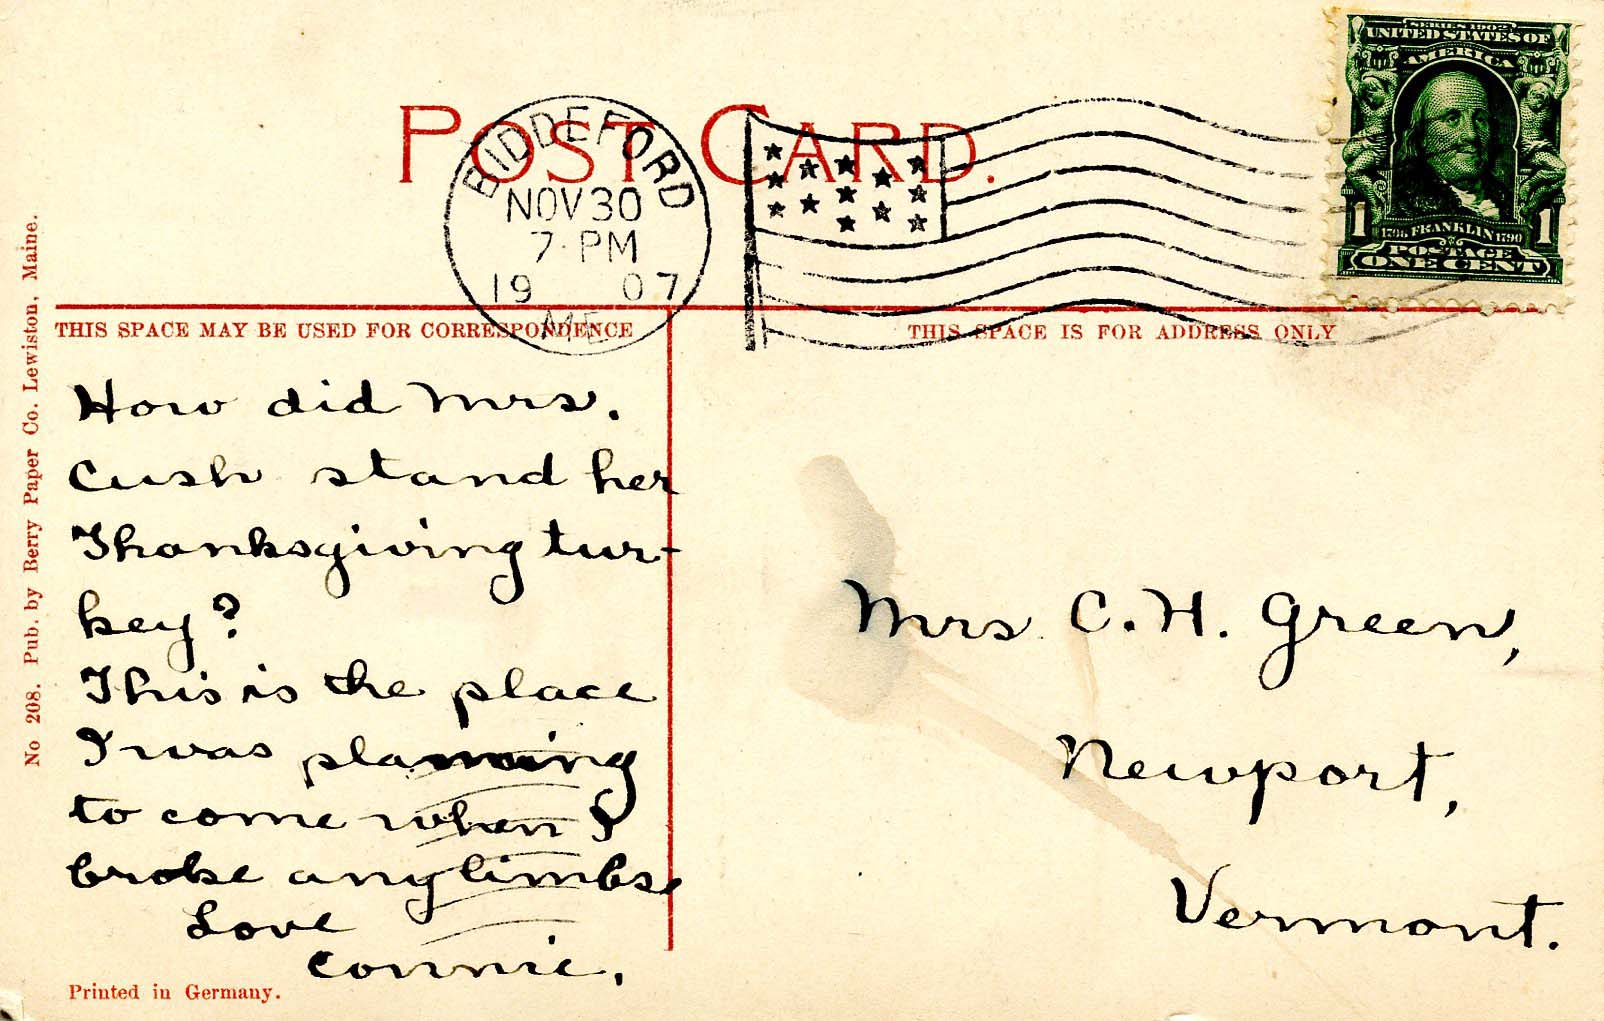 POST CARD.
BIDDEFORD
NOV 30
7- PM
19 07
ME.
SERIES 1902
UNITED STATES OF
AMERICA
1706 FRANKLIN 1790
POSTAGE
1 ONE CENT 1
THIS SPACE MAY BE USED FOR CORRESPONDENCE
THIS SPACE IS FOR ADDRESS ONLY
No 208. Pub. by Berry Paper Co. Lewiston, Maine.
How did Mrs.
Cush stand her
Thanksgiving tur-
key?
This is the place
I was planning
to come when I
broke any limbs.
Love
Connie.
Mrs C. H. Green,
Newport,
Vermont.
Printed in Germany.